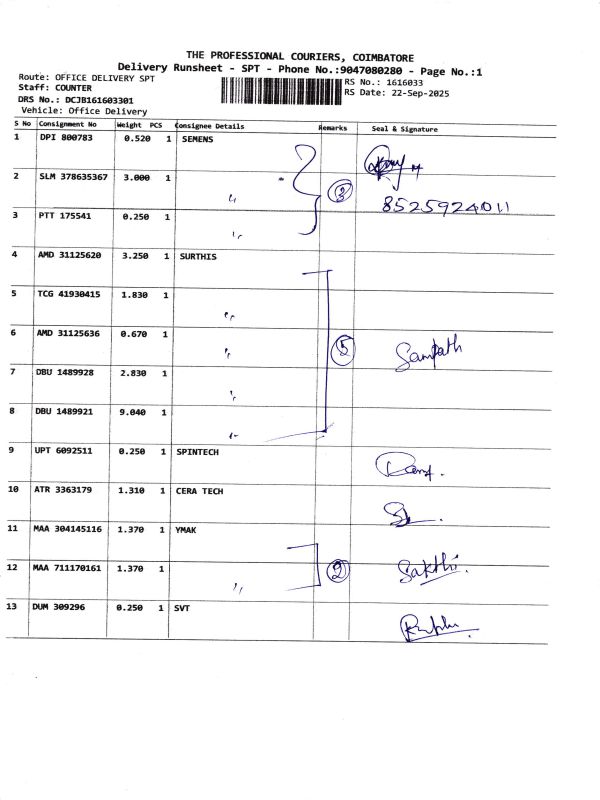 THE PROFESSIONAL COURIERS, COIMBATORE
Delivery Runsheet - SPT - Phone No.:9047080280 - Page No.:1
Route: OFFICE DELIVERY SPT
RS No.: 1616033
Staff: COUNTER
RS Date: 22-Sep-2025
DRS No.: DCJB161603301
Vehicle: Office Delivery
S No Consignment No Weight PCS Consignee Details Remarks Seal & Signature
1 DPI 800783 0.520 1 SEMENS
2 SLM 378635367 3.000 1 〃 3 8525924011
3 PTT 175541 0.250 1 〃
4 AMD 31125620 3.250 1 SURTHIS
5 TCG 41930415 1.830 1 〃
6 AMD 31125636 0.670 1 〃 5 Sampath
7 DBU 1489928 2.830 1 〃
8 DBU 1489921 9.040 1 〃
9 UPT 6092511 0.250 1 SPINTECH
10 ATR 3363179 1.310 1 CERA TECH
11 MAA 304145116 1.370 1 YMAK
12 MAA 711170161 1.370 1 〃 2 Sakthi.
13 DUM 309296 0.250 1 SVT